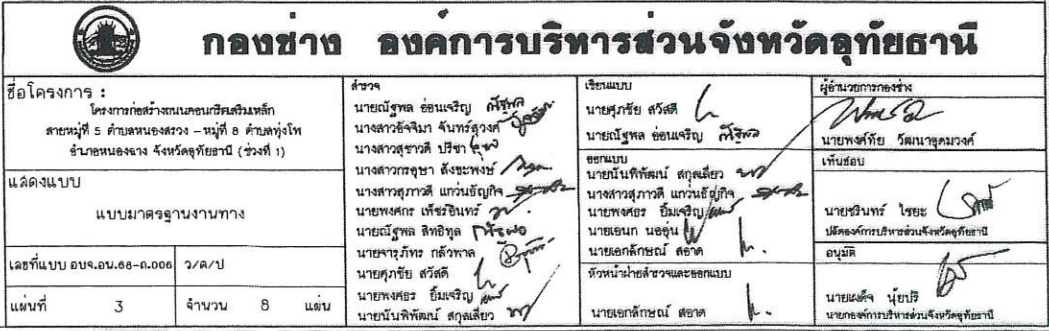 กองช่าง องค์การบริหารส่วนจังหวัดอุทัยธานี
ชื่อโครงการ :
โครงการก่อสร้างถนนคอนกรีตเสริมเหล็ก
สายหมู่ที่ 5 ตำบลหนองสรวง - หมู่ที่ 8 ตำบลทุ่งโพ
อำเภอหนองฉาง จังหวัดอุทัยธานี (ช่วงที่ 1)
แสดงแบบ
แบบมาตรฐานงานทาง
เลขที่แบบ อบจ.อน.68-ถ.006
ว/ด/ป
แผ่นที่ 3 จำนวน 8 แผ่น
สำรวจ
นายณัฐพล อ่อนเจริญ ณัฐพล
นางสาวอัจจิมา จันทร์สุวงศ์
นางสาวสุชาวดี ปรีชา
นางสาวกรอุษา สังขะพงษ์
นางสาวสุภาวดี แกว่นธัญกิจ
นายพงศกร เพ็ชรอินทร์
นายณัฐพล สิทธิทูล
นายจารุภัทร กลัวพาล
นายศุภชัย สวัสดี
นายพงศธร ยิ้มเจริญ
นายนันทิพัฒน์ สกุลเสี่ยว
เขียนแบบ
นายศุภชัย สวัสดี
นายณัฐพล อ่อนเจริญ ณัฐพล
ออกแบบ
นายนันทิพัฒน์ สกุลเสี่ยว
นางสาวสุภาวดี แกว่นธัญกิจ
นายพงศธร ยิ้มเจริญ
นายเอนก นออุ่น
นายเอกลักษณ์ สอาด
หัวหน้าฝ่ายสำรวจและออกแบบ
นายเอกลักษณ์ สอาด
ผู้อำนวยการกองช่าง
นายพงศ์ทัย วัฒนาอุดมวงศ์
เห็นชอบ
นายชรินทร์ ไชยะ
ปลัดองค์การบริหารส่วนจังหวัดอุทัยธานี
อนุมัติ
นายเผด็จ นุ้ยปรี
นายกองค์การบริหารส่วนจังหวัดอุทัยธานี